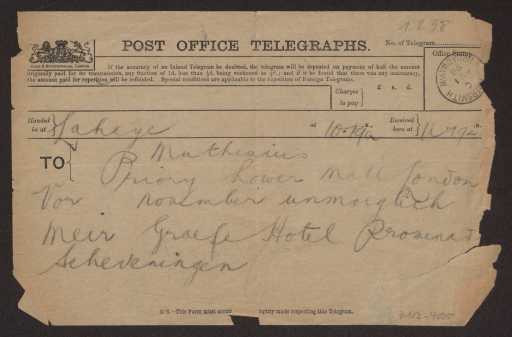 1.6.98
POST OFFICE TELEGRAPHS.
No. of Telegram
If the accuracy of an Inland Telegram be doubted, the telegram will be repeated on payment of half the amount
originally paid for its transmission, any fraction of 1d. less than ½d. being reckoned as ½d.; and if it be found that there was any inaccuracy,
the amount paid for repetition will be refunded. Special conditions are applicable to the repetition of Foreign Telegrams.
Office Stamp.
Charges to pay
£ s. d.
Handed in at
Lahaye
at
Received here at
TO
Muthesius
Priory Lower Mall London
Vor november unmoeglich
Meir Graefe Hotel Promenad
Scheveningen
N.B.—This Form must accom
iquiry made respecting this Telegram.